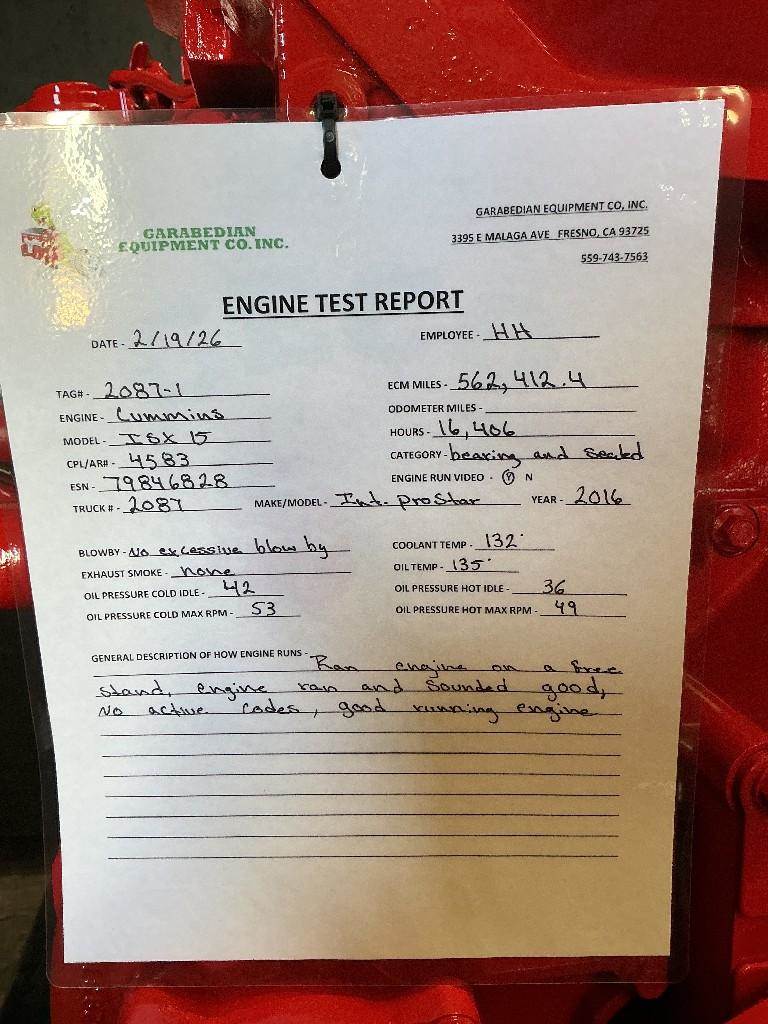 GARABEDIAN
EQUIPMENT CO. INC.
GARABEDIAN EQUIPMENT CO, INC.
3395 E MALAGA AVE FRESNO, CA 93725
559-743-7563
ENGINE TEST REPORT
DATE - 2/19/26 EMPLOYEE - HH
TAG# - 2087-1 ECM MILES - 562,412.4
ENGINE - Cummins ODOMETER MILES -
MODEL - ISX 15 HOURS - 16,406
CPL/AR# - 4583 CATEGORY - bearing and sealed
ESN - 79846828 ENGINE RUN VIDEO - Y N
TRUCK # - 2087 MAKE/MODEL - Int. ProStar YEAR - 2016
BLOWBY - No excessive blow by COOLANT TEMP - 132°
EXHAUST SMOKE - none OIL TEMP - 135°
OIL PRESSURE COLD IDLE - 42 OIL PRESSURE HOT IDLE - 36
OIL PRESSURE COLD MAX RPM - 53 OIL PRESSURE HOT MAX RPM - 49
GENERAL DESCRIPTION OF HOW ENGINE RUNS - Ran engine on a free
stand, engine ran and sounded good,
No active codes, good running engine